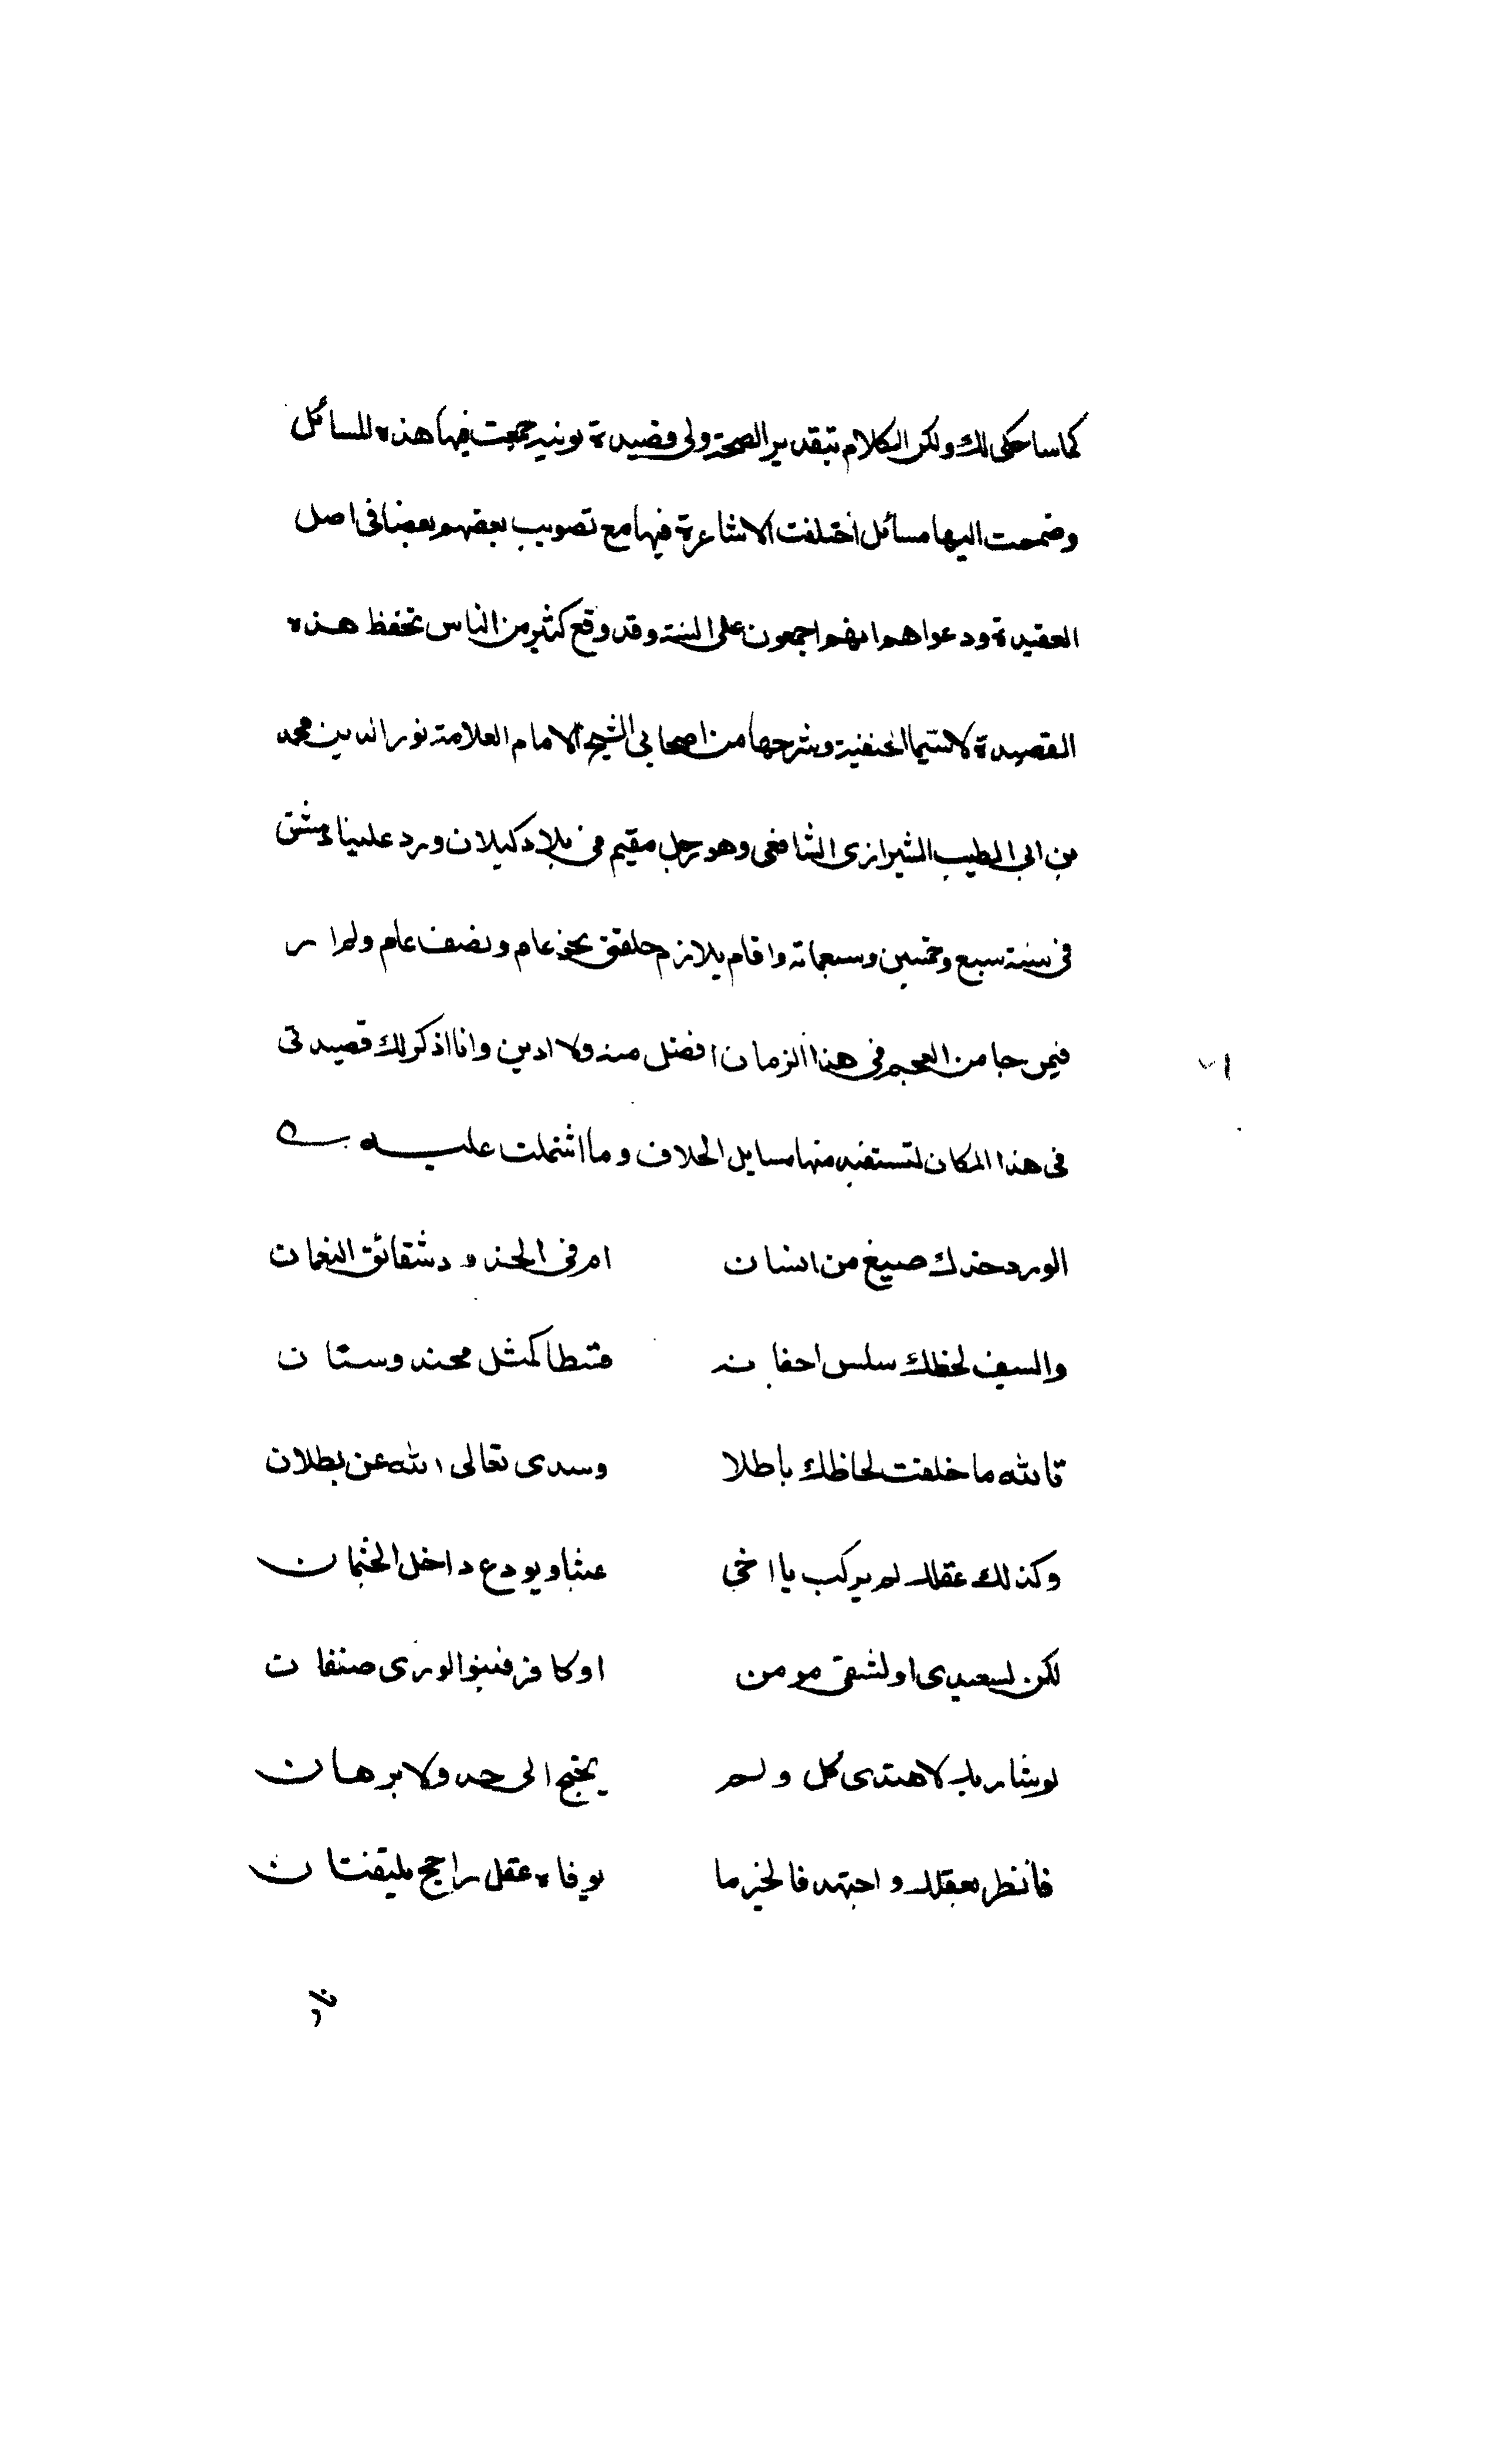 كما ساحكى لك ولكن الكلام بتقدير الصحة ولى قصيدة نونية جمعت فيها هذه المسائل
وضممت اليها مسائل اختلفت الاشاعرة فيها مع تصويب بعضهم بعضا فى اصل
العقيدة ودعواهم انهم اجمعون على السنة وقد وقع كثير من الناس تحفظ هذه
القصيدة لا سيما الحنفية وشرحها من اصحابى الشيخ الامام العلامة نور الدين محمد
بن ابى الطيب الشيرازى الشافعى وهو رجل مقيم فى بلاد كيلان ورد علينا دمشق
فى سنة سبع وخمسين وسبعماته واقام يلازم حلقتى نحو عام ونصف عام ولم ار
فيمن جا من العجم فى هذا الزمان افضل منه ولا ادين وانا اذكر لك قصيدتى
فى هذا المكان لتستفيد منها مسايل الخلاف وما اشتملت عليه
الورد خدك صيغ من انسان ام فى الخدود شقائق النعمان
والسيف لحظك سل من اجفانه فسطا كمثل مهند وسنان
تالله ما خلقت لحاظك باطلا وسدى تعالى الله عن بطلان
وكذلك عقلك لم يركب يا اخى عبثا ويودع داخل الجثمان
لكن ليسعد او ليشقى مومن او كافر فبنو الورى صنفان
لو شا ربك لاهتدى كل ولم يحتج الى حد ولا برهان
فانظر بعقلك واجتهد فالخير ما يوفاه عقل راجح